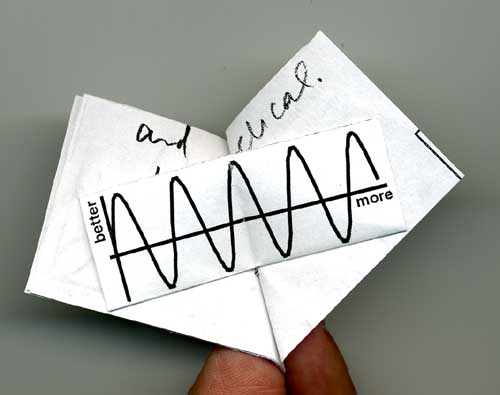 and
clical.
better
more